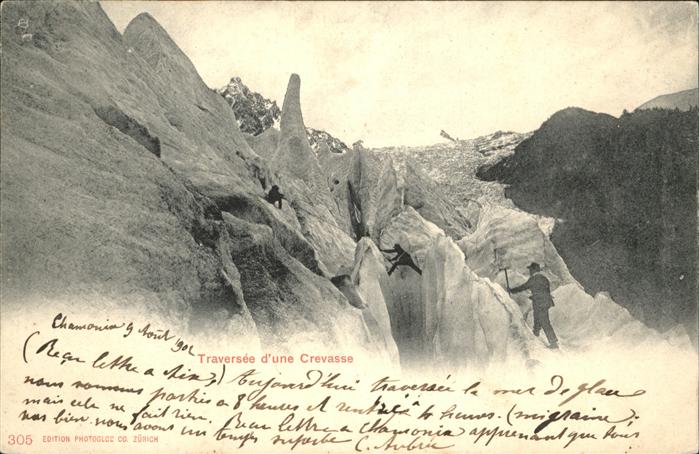 Chamonix 9 Août 1902
Traversée d'une Crevasse
(Reçu lettre à Aix,) Aujourd'hui traversée la mer de glace
nous sommes partis à 8 heures et rentrés à 4 heures. (migraine)
mais cela ne fait rien. Reçu lettre à Chamonix apprenant que tous
vas bien. nous avons un temps superbe C. Aubrée
305 EDITION PHOTOGLOB CO. ZÜRICH